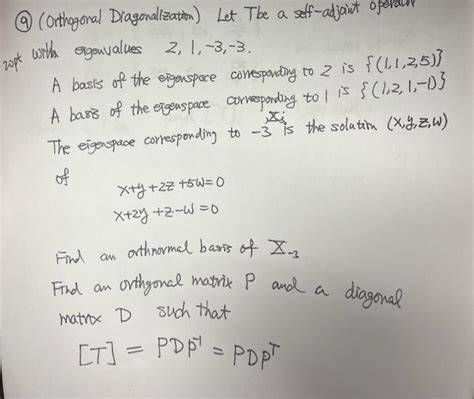 ⑨ (Orthogonal Diagonalization) Let T be a self-adjoint operator
20pt with eigenvalues 2, 1, -3, -3.
A basis of the eigenspace corresponding to 2 is {(1,1,2,5)}
A basis of the eigenspace corresponding to 1 is {(1,2,1,-1)}
The eigenspace corresponding to -3 X₋₃ is the solution (x,y,z,w)
of
x+y+2z+5w=0
x+2y+z-w=0
Find an orthnormal basis of X₋₃
Find an orthgonal matrix P and a diagonal
matrix D such that
[T] = PDP⁻¹ = PDPᵀ